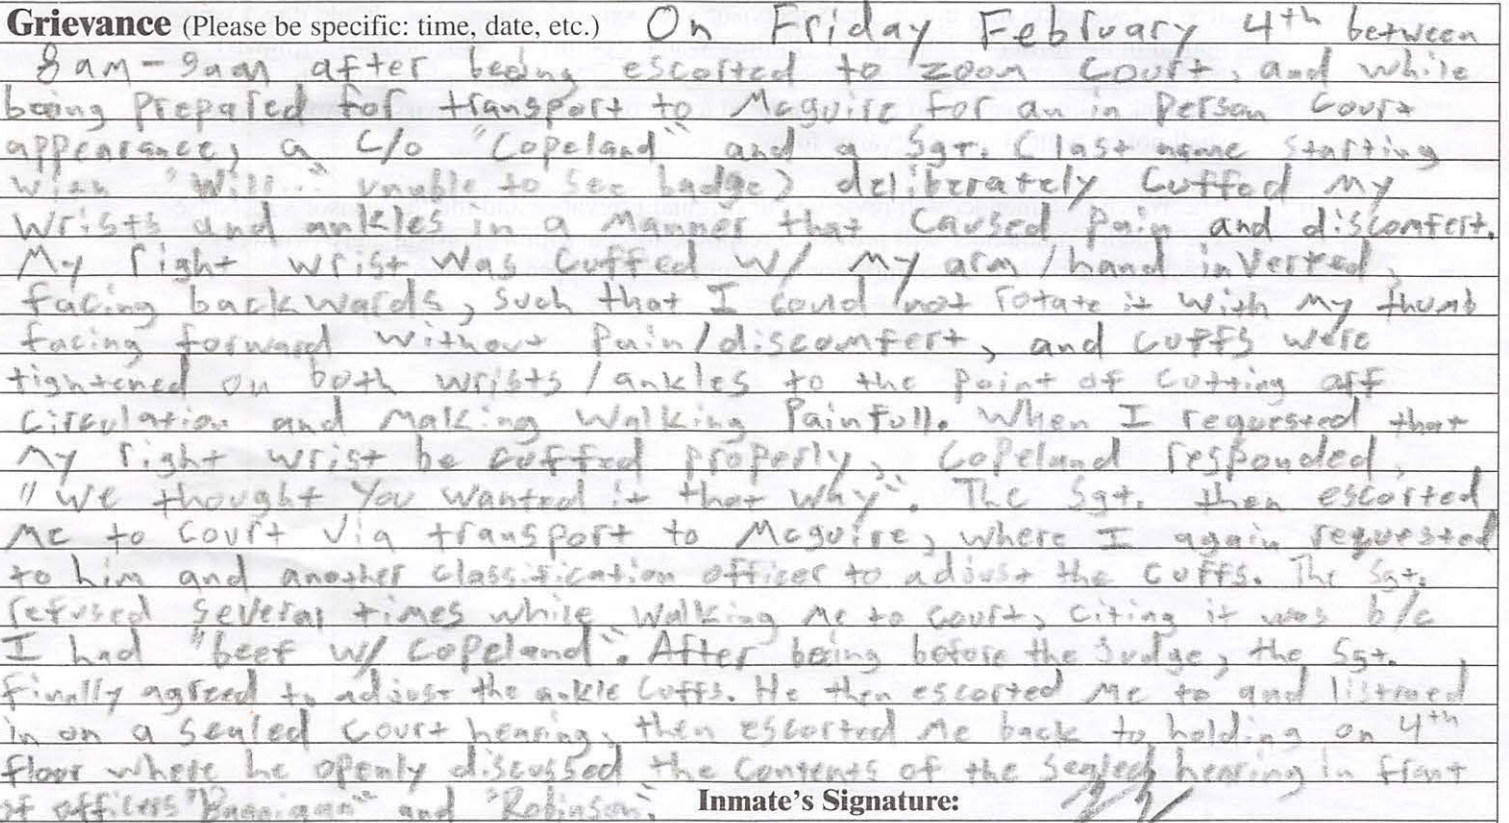 Grievance (Please be specific: time, date, etc.) On Friday February 4th between
8am-9am after being escorted to zoom court, and while
being prepared for transport to Mcguire for an in person court
appearance, a C/o "Copeland" and a Sgt. (last name starting
with "Will..." unable to see badge) deliberately cuffed my
wrists and ankles in a manner that caused pain and discomfert.
My right wrist was cuffed w/ my arm/hand inverted,
facing backwards, such that I could not rotate it with my thumb
facing forward without pain/discomfert, and cuffs were
tightened on both wrists/ankles to the point of cutting off
circulation and making walking painfull. When I requested that
my right wrist be cuffed properly, Copeland responded,
"we thought you wanted it that way". The Sgt. then escorted
me to court via transport to Mcguire, where I again requested
to him and another classification officer to adjust the cuffs. The Sgt.
refused several times while walking me to court, citing it was b/c
I had "beef w/ Copeland". After being before the judge, the Sgt.
finally agreed to adjust the ankle cuffs. He then escorted me to and listened
in on a sealed court hearing, then escorted me back to holding on 4th
floor where he openly discussed the contents of the sealed hearing in front
of officers and "Robinson". Inmate's Signature: